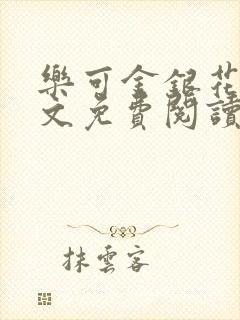 樂可金銀花
文免費閱讀
抹雲客